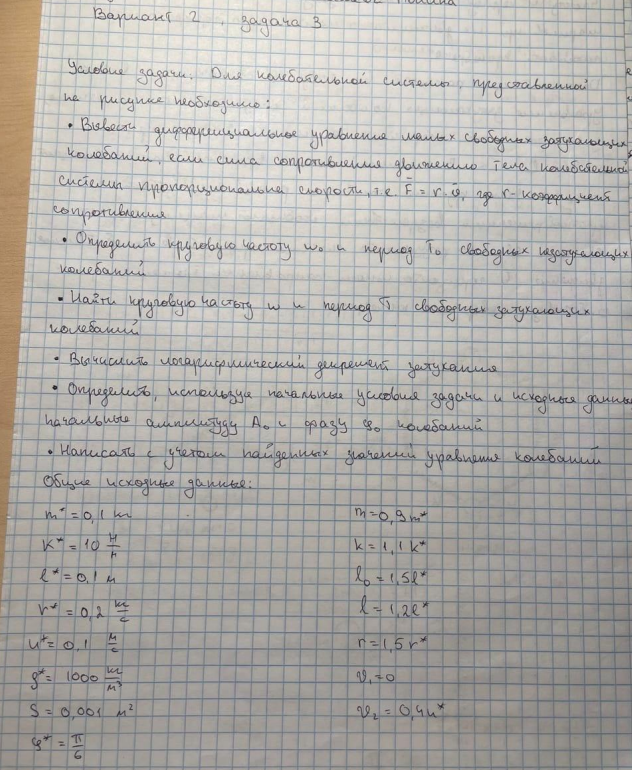 Вариант 2, задача 3
Условие задачи. Для колебательной системы, представленной
на рисунке необходимо:
• Вывести дифференциальное уравнение малых свободных затухающих
колебаний, если сила сопротивления движению тела колебательной
системы пропорциональна скорости, т.е. F⃗ = r·υ⃗, где r - коэффициент
сопротивления
• Определить круговую частоту ω₀ и период T₀ свободных незатухающих
колебаний
• Найти круговую частоту ω и период T свободных затухающих
колебаний
• Вычислить логарифмический декремент затухания
• Определить, используя начальные условия задачи и исходные данные
начальные амплитуду A₀ и фазу φ₀ колебаний
• Написать с учетом найденных значений уравнения колебаний
Общие исходные данные:
m* = 0,1 кг m = 0,9 m*
k* = 10 Н/м k = 1,1 k*
l* = 0,1 м l₀ = 1,5 l*
r* = 0,2 кг/с l = 1,2 l*
u* = 0,1 м/с r = 1,5 r*
ρ* = 1000 кг/м³ υ₁ = 0
S = 0,001 м² υ₂ = 0,4 u*
φ* = π/6